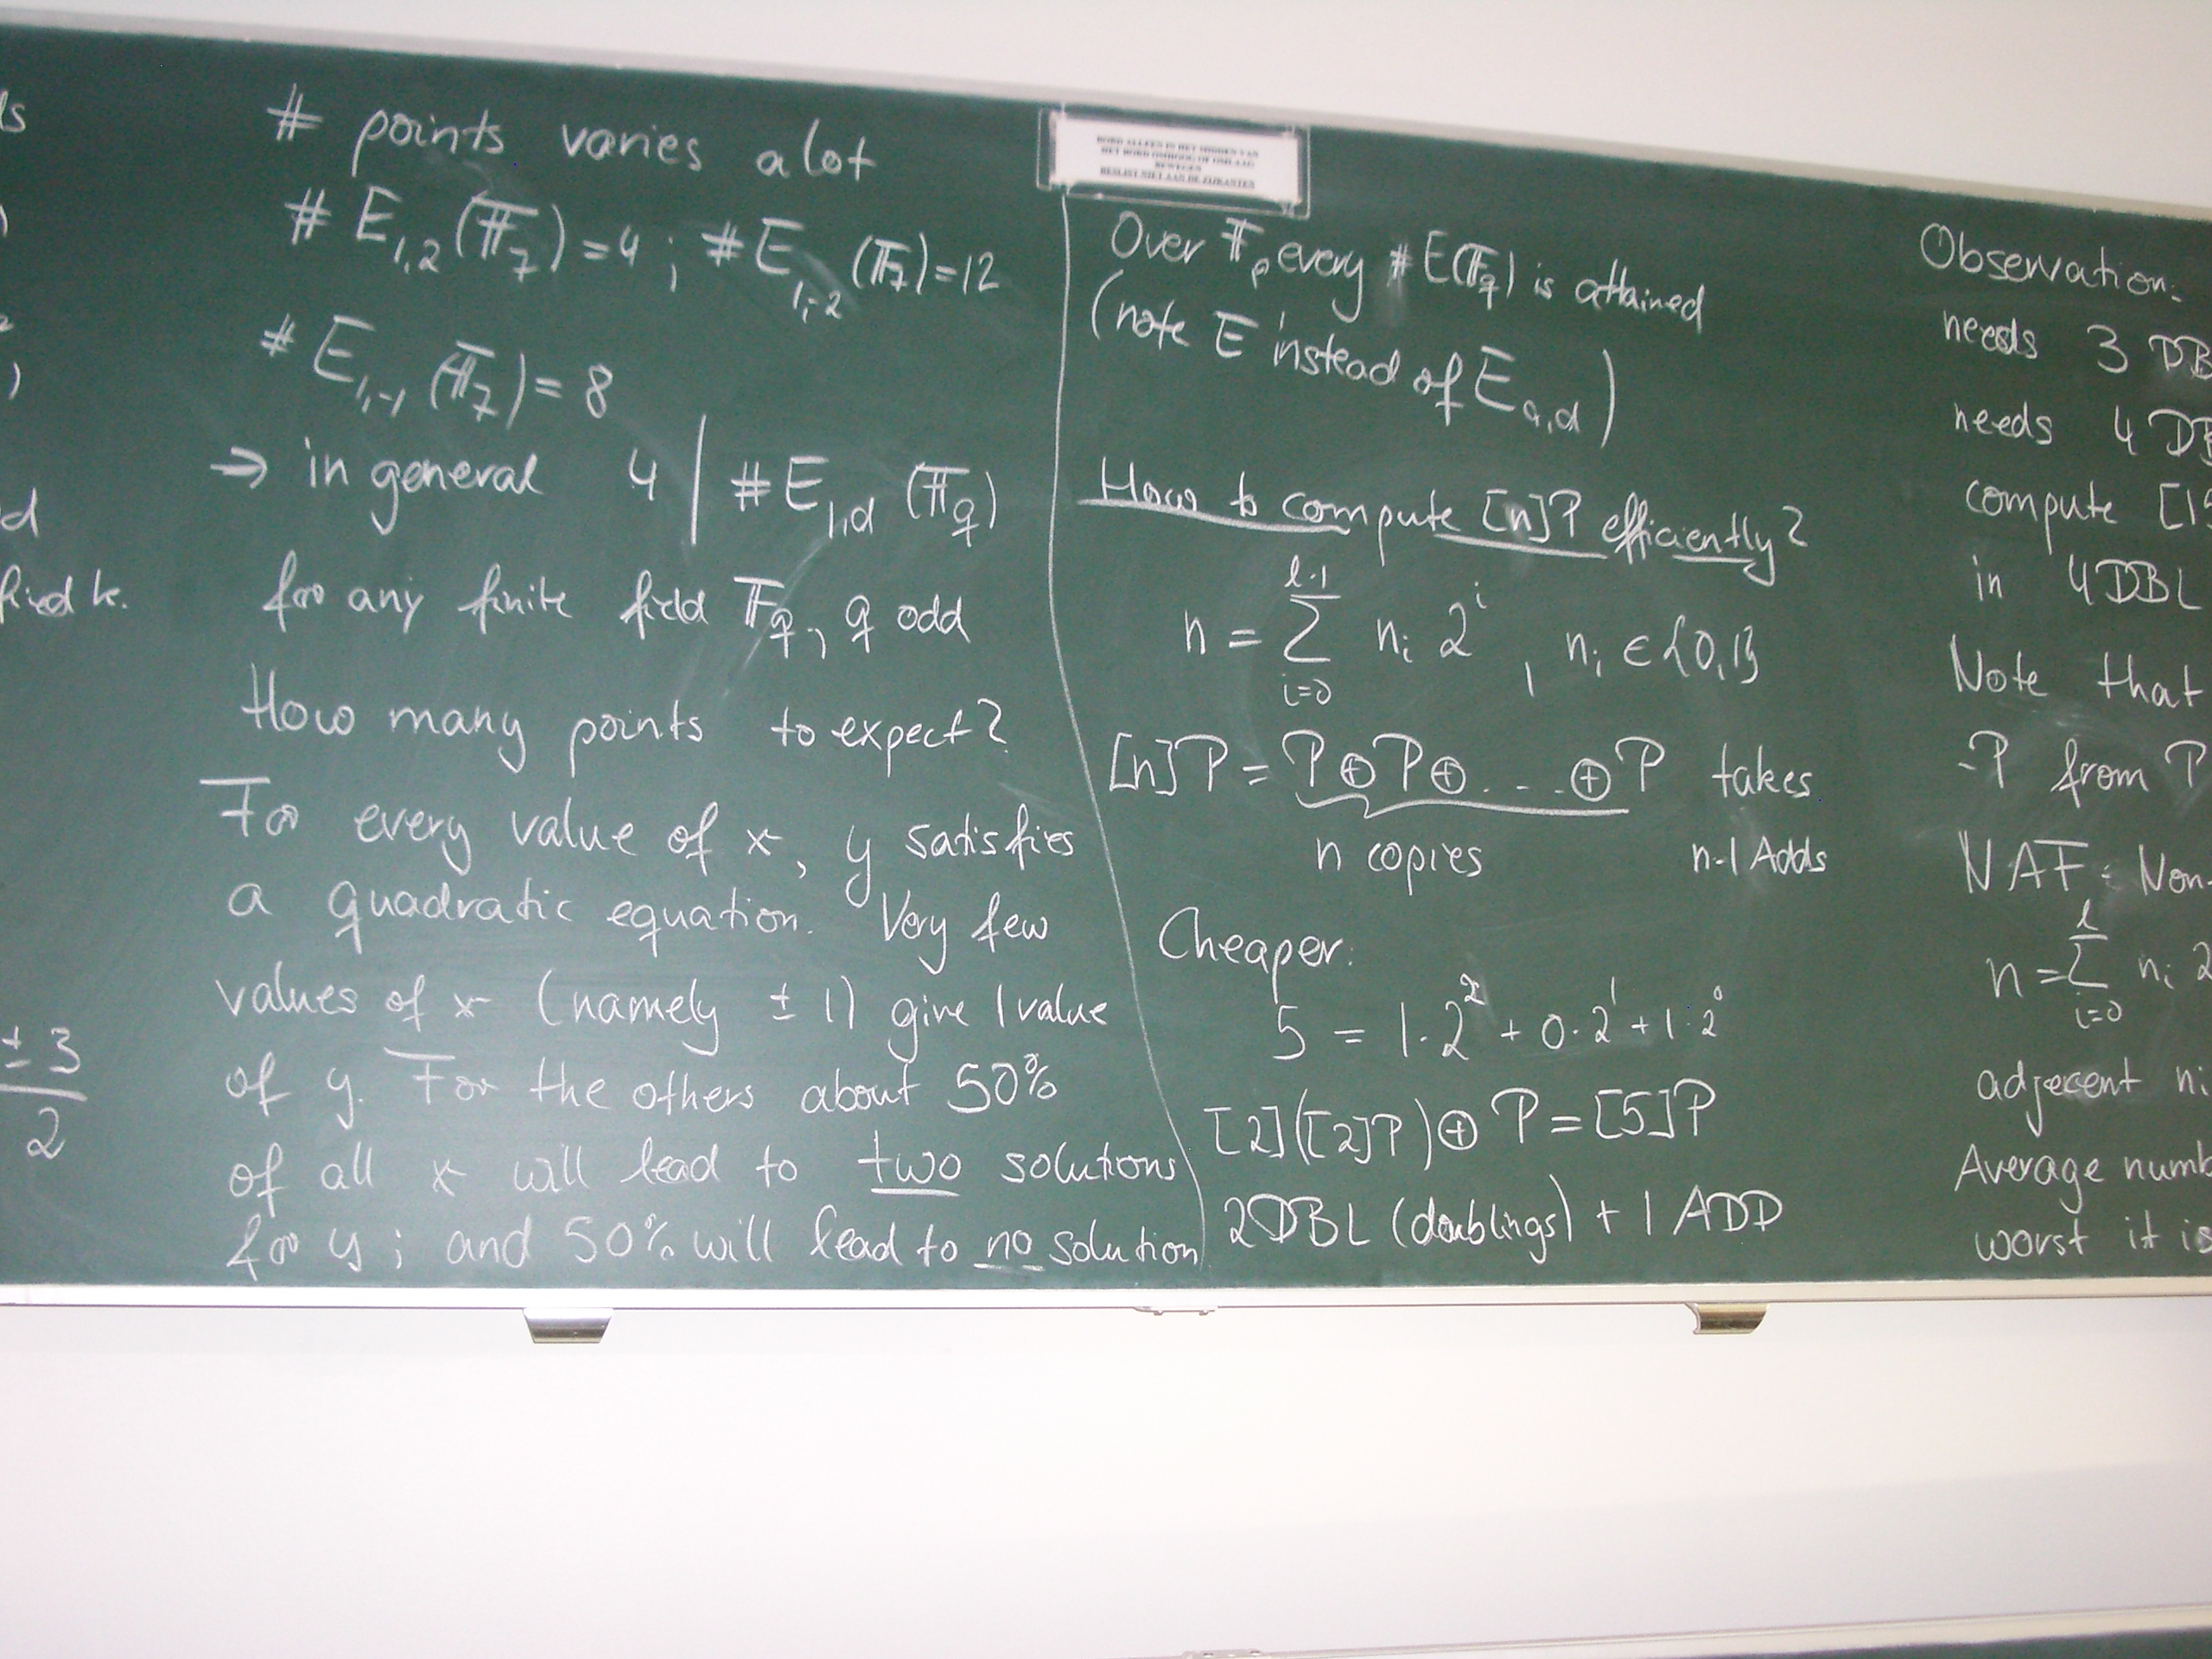 ls
)
)
d
fixed k.
± 3
2
# points varies a lot
# E₁,₂ (𝔽₇) = 4 ; # E₁,₋₂ (𝔽₇) = 12
# E₁,₋₁ (𝔽₇) = 8
→ in general 4 | # E₁,d (𝔽q)
for any finite field 𝔽q, q odd
How many points to expect?
For every value of x, y satisfies
a quadratic equation. Very few
values of x (namely ± 1) give 1 value
of y. For the others about 50%
of all x will lead to two solutions
for y ; and 50% will lead to no solution
BORD ALLEEN IN HET MIDDEN VAN
HET BORD OMHOOG OF OMLAAG
BEWEGEN
BESLIST NIET AAN DE ZIJKANTEN
Over 𝔽p every # E(𝔽q) is attained
(note E instead of E a,d)
How to compute [n]P efficiently?
l-1
n = Σ nᵢ 2ⁱ , nᵢ ∈ {0,1}
i=0
[n]P = P⊕P⊕....⊕P takes
n copies n-1 Adds
Cheaper:
5 = 1·2² + 0·2¹ + 1·2⁰
[2]([2]P)⊕P = [5]P
2DBL (doublings) + 1 ADD
Observation:
needs 3 DB
needs 4 DB
compute [15
in 4DBL
Note that
-P from P
NAF : Non-
l
n = Σ nᵢ 2
i=0
adjecent nᵢ
Average numb
worst it is